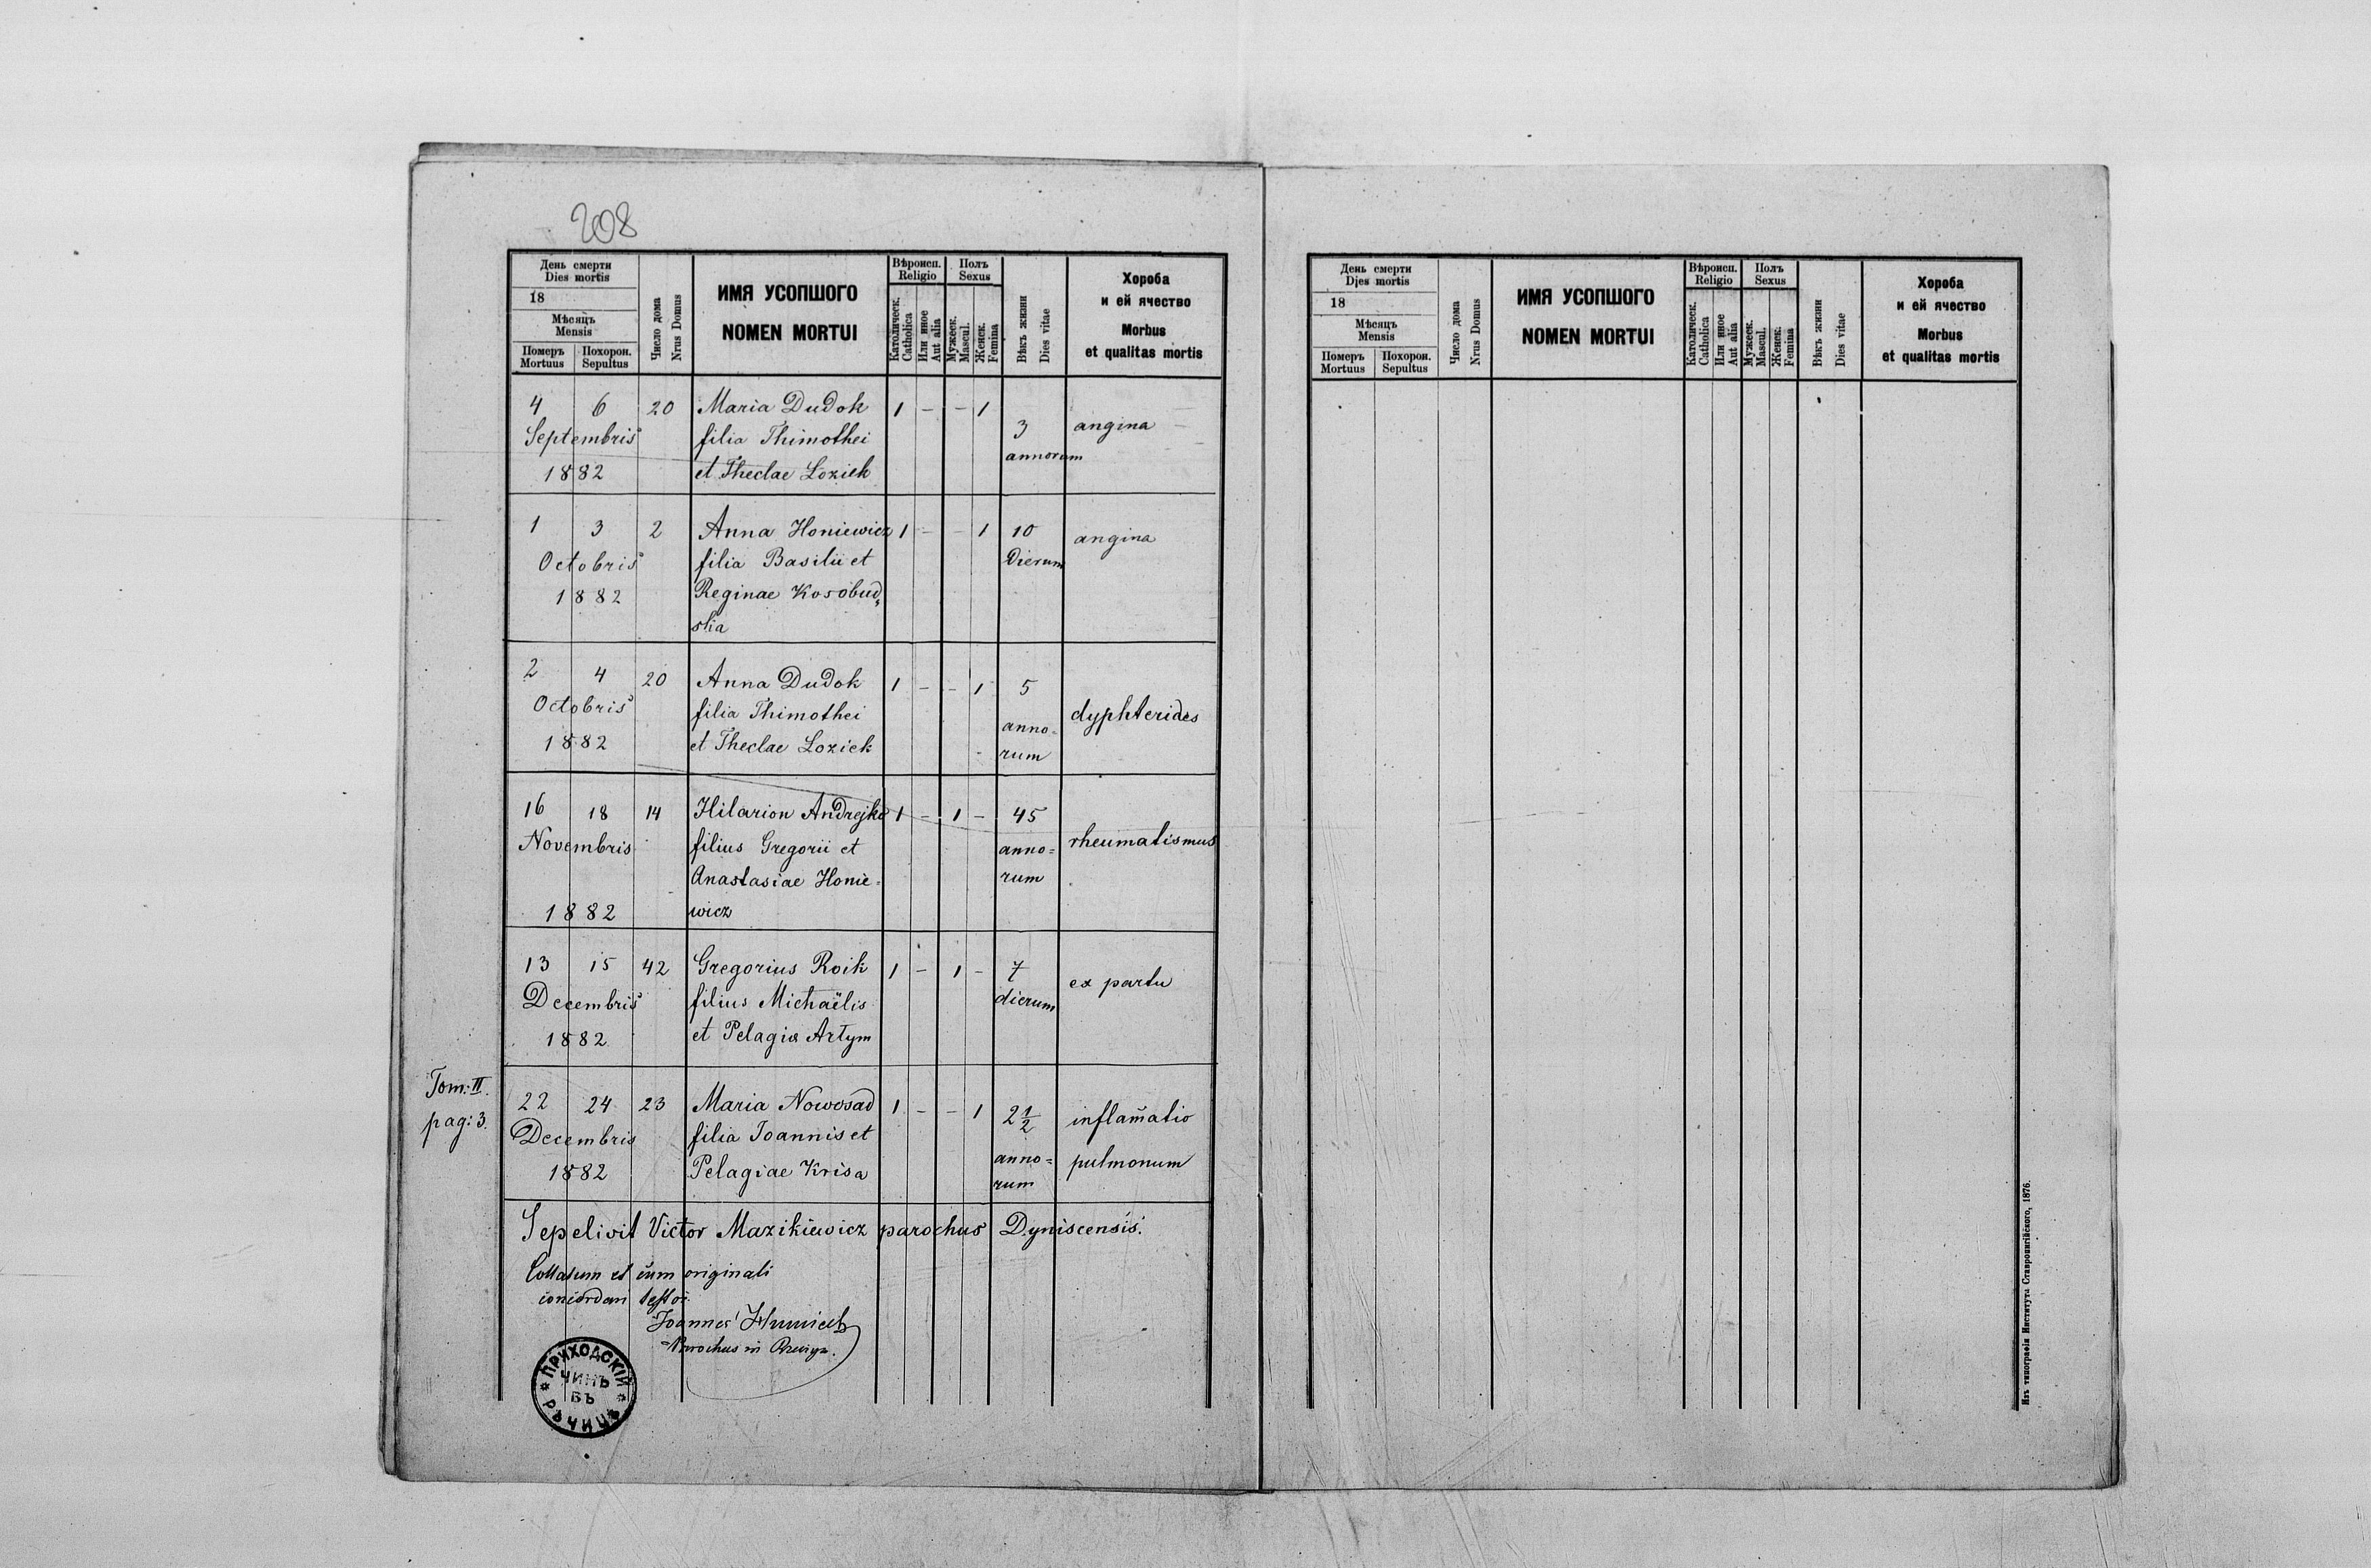 208
День смерти
Dies mortis
18
Мѣсяцъ
Mensis
Померъ
Mortuus
Похорон.
Sepultus
Число дома
Nrus Domus
ИМЯ УСОПШОГО
NOMEN MORTUI
Вѣроисп.
Religio
Католическ.
Catholica
Или иное
Aut alia
Полъ
Sexus
Мужеск.
Mascul.
Женск.
Femina
Вѣкъ жизни
Dies vitae
Хороба
и ей ячество
Morbus
et qualitas mortis
4 6 20 Maria Dudok 1 - - 1 3 angina
Septembris filia Thimothei annorum
1882 et Theclae Loziek
1 3 2 Anna Honiewicz 1 - - 1 10 angina
Octobris filia Basilii et Dierum
1882 Reginae Kosobud„
ska
2 4 20 Anna Dudok 1 - - 1 5 dyphterides
Octobris filia Thimothei anno=
1882 et Theclae Loziek rum
16 18 14 Hilarion Andrejko 1 - 1 - 45 rheumatismus
Novembris filius Gregorii et anno=
Anastasiae Honie= rum
1882 wicz
13 15 42 Gregorius Roik 1 - 1 - 7 ex partu
Decembris filius Michaëlis dierum
1882 et Pelagia Artym
Tom: II.
pag: 3.
22 24 23 Maria Nowosad 1 - - 1 2 1/2 inflam̄atio
Decembris filia Joannis et anno= pulmonum
1882 Pelagiae Krisa rum
Sepelivit Victor Mazikiewicz parochus Dyniscensis.
Collatum et cum originali
concordari testor
Joannes
Parochus in
ПРИХОДСКІЙ
ЧИНЪ
ВЪ
РѢЧИЦѢ
День смерти
Djes mortis
18
Мѣсяцъ
Mensis
Померъ
Mortuus
Похорон.
Sepultus
Число дома
Nrus Domus
ИМЯ УСОПШОГО
NOMEN MORTUI
Вѣроисп.
Religio
Католическ.
Catholica
Или иное
Aut alia
Полъ
Sexus
Мужеск.
Mascul.
Женск.
Femina
Вѣкъ жизни
Dies vitae
Хороба
и ей ячество
Morbus
et qualitas mortis
Изъ типографіи Института Ставропигійского, 1876.